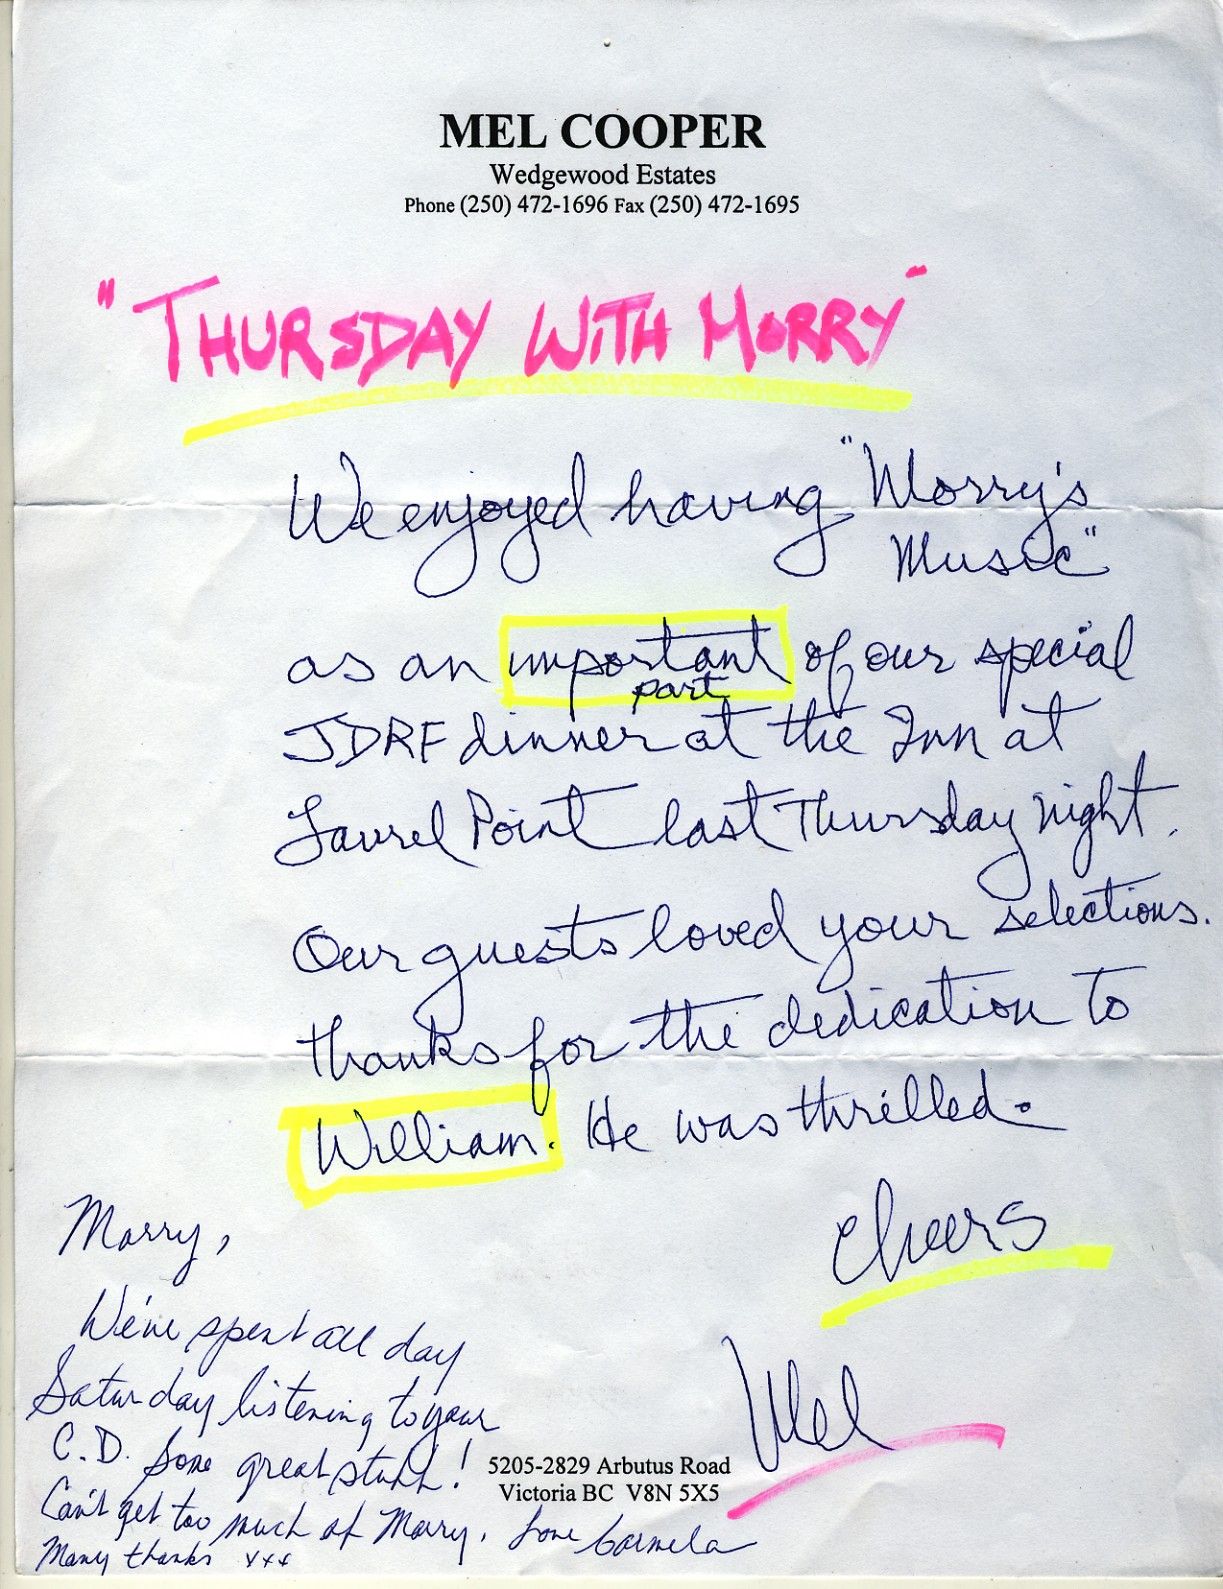 MEL COOPER
Wedgewood Estates
Phone (250) 472-1696 Fax (250) 472-1695
"THURSDAY WITH MORRY"
We enjoyed having "Morry's
Music"
as an important of our special
part
JDRF dinner at the Inn at
Laurel Point last Thursday night.
Our guests loved your selections.
Thanks for the dedication to
William. He was thrilled.
Cheers
Mel
Morry,
We've spent all day
Saturday listening to your
C.D. Some great stuff!
Can't get too much of Morry. Love Carmela
Many thanks xxx
5205-2829 Arbutus Road
Victoria BC V8N 5X5